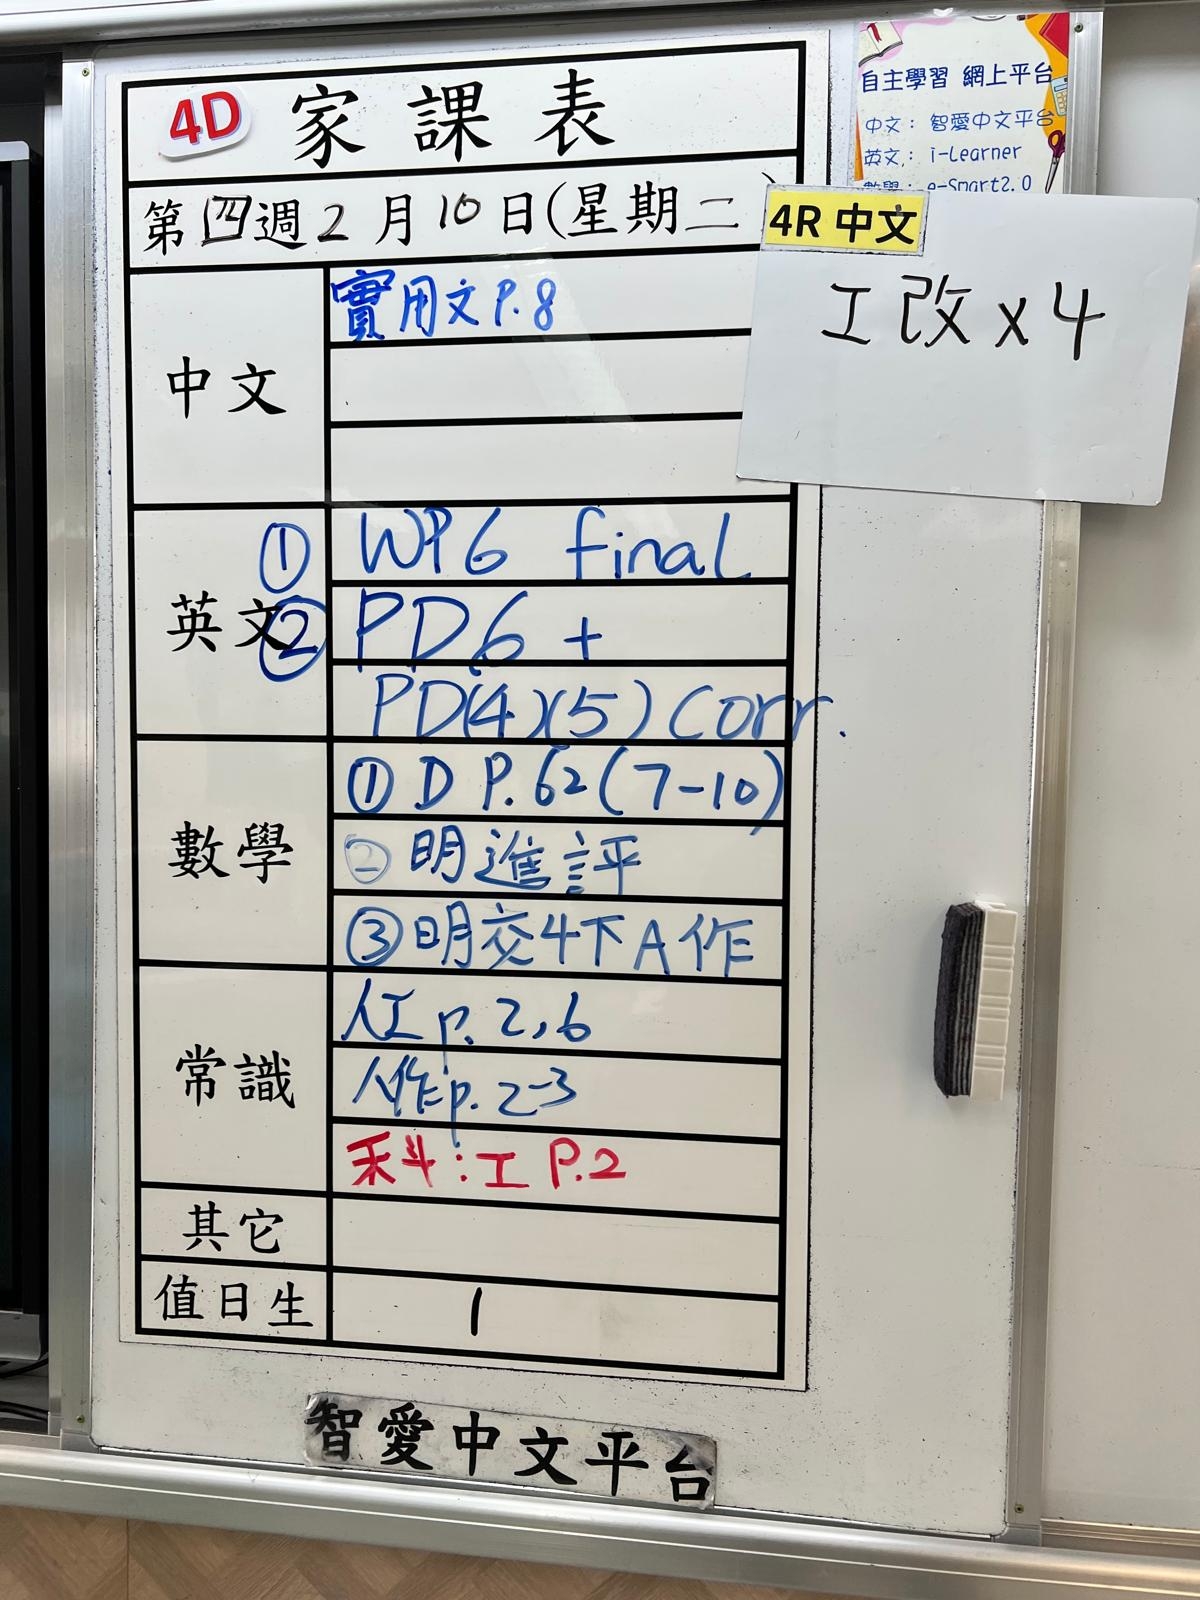 4D 家課表
第四週2月10日(星期二)
中文
實用文P.8
英文
① WP6 final
② PD6 +
PD(4)(5) corr.
數學
① D P.62(7-10)
② 明進評
③ 明交4下A作
常識
人工p. 2,6
人作p. 2-3
科:工 P.2
其它
值日生
1
智愛中文平台
自主學習 網上平台
中文: 智愛中文平台
英文: i-Learner
數學: e-Smart2.0
4R 中文
工改x4